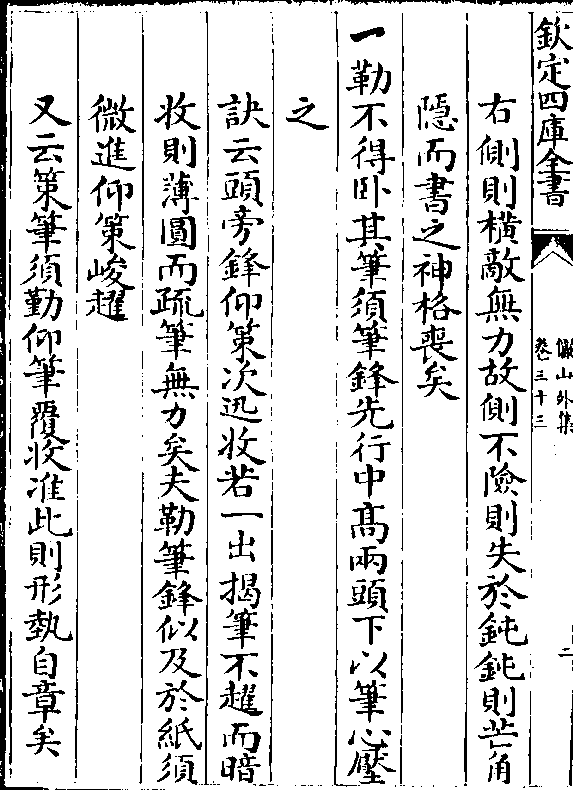 欽定四庫全書
儼山外集
卷三十三
二
右側則橫敵無力故側不險則失於鈍鈍則芒角
隱而書之神格喪矣
一勒不得卧其筆須筆鋒先行中高兩頭下以筆心壓
之
訣云頭旁鋒仰策次迅收若一出揭筆不趯而暗
收則薄圓而疏筆無力矣夫勒筆鋒似及於紙須
微進仰策峻趯
又云策筆須勤仰筆覆收准此則形埶自章矣